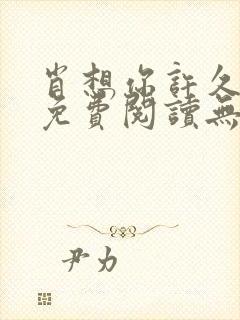 肖想你許久
免費閱讀無
尹力